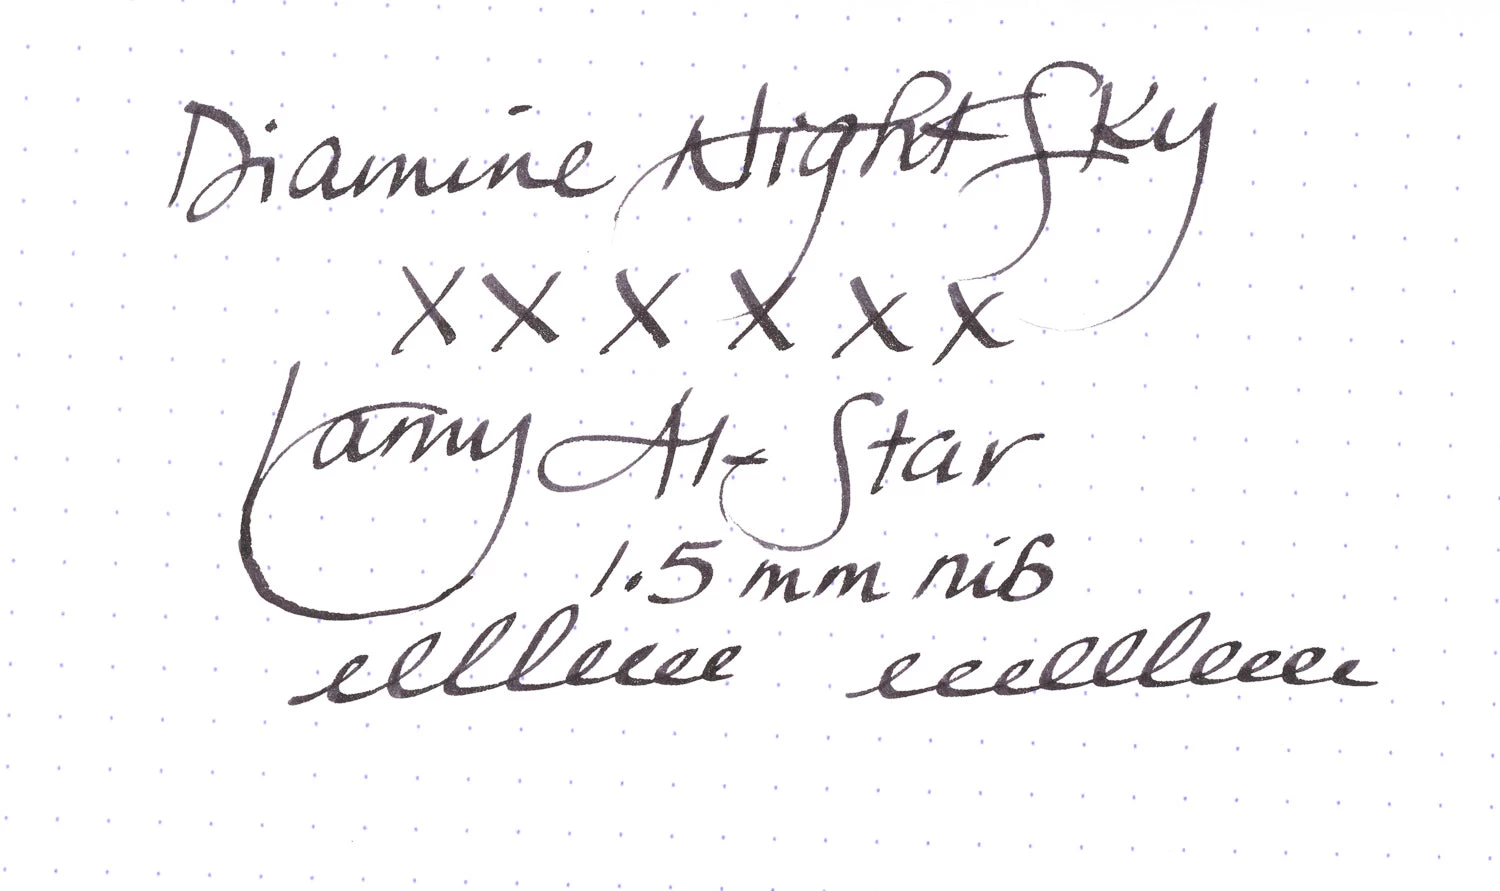 Diamine Night Sky
x x x x x x
Lamy Al-Star
1.5 mm nib
elllleeee eeelllleeee